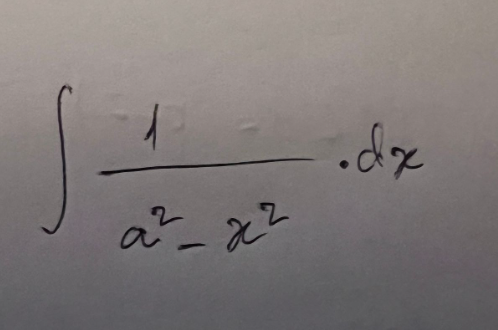 ∫ 1 / (a² - x²) . dx